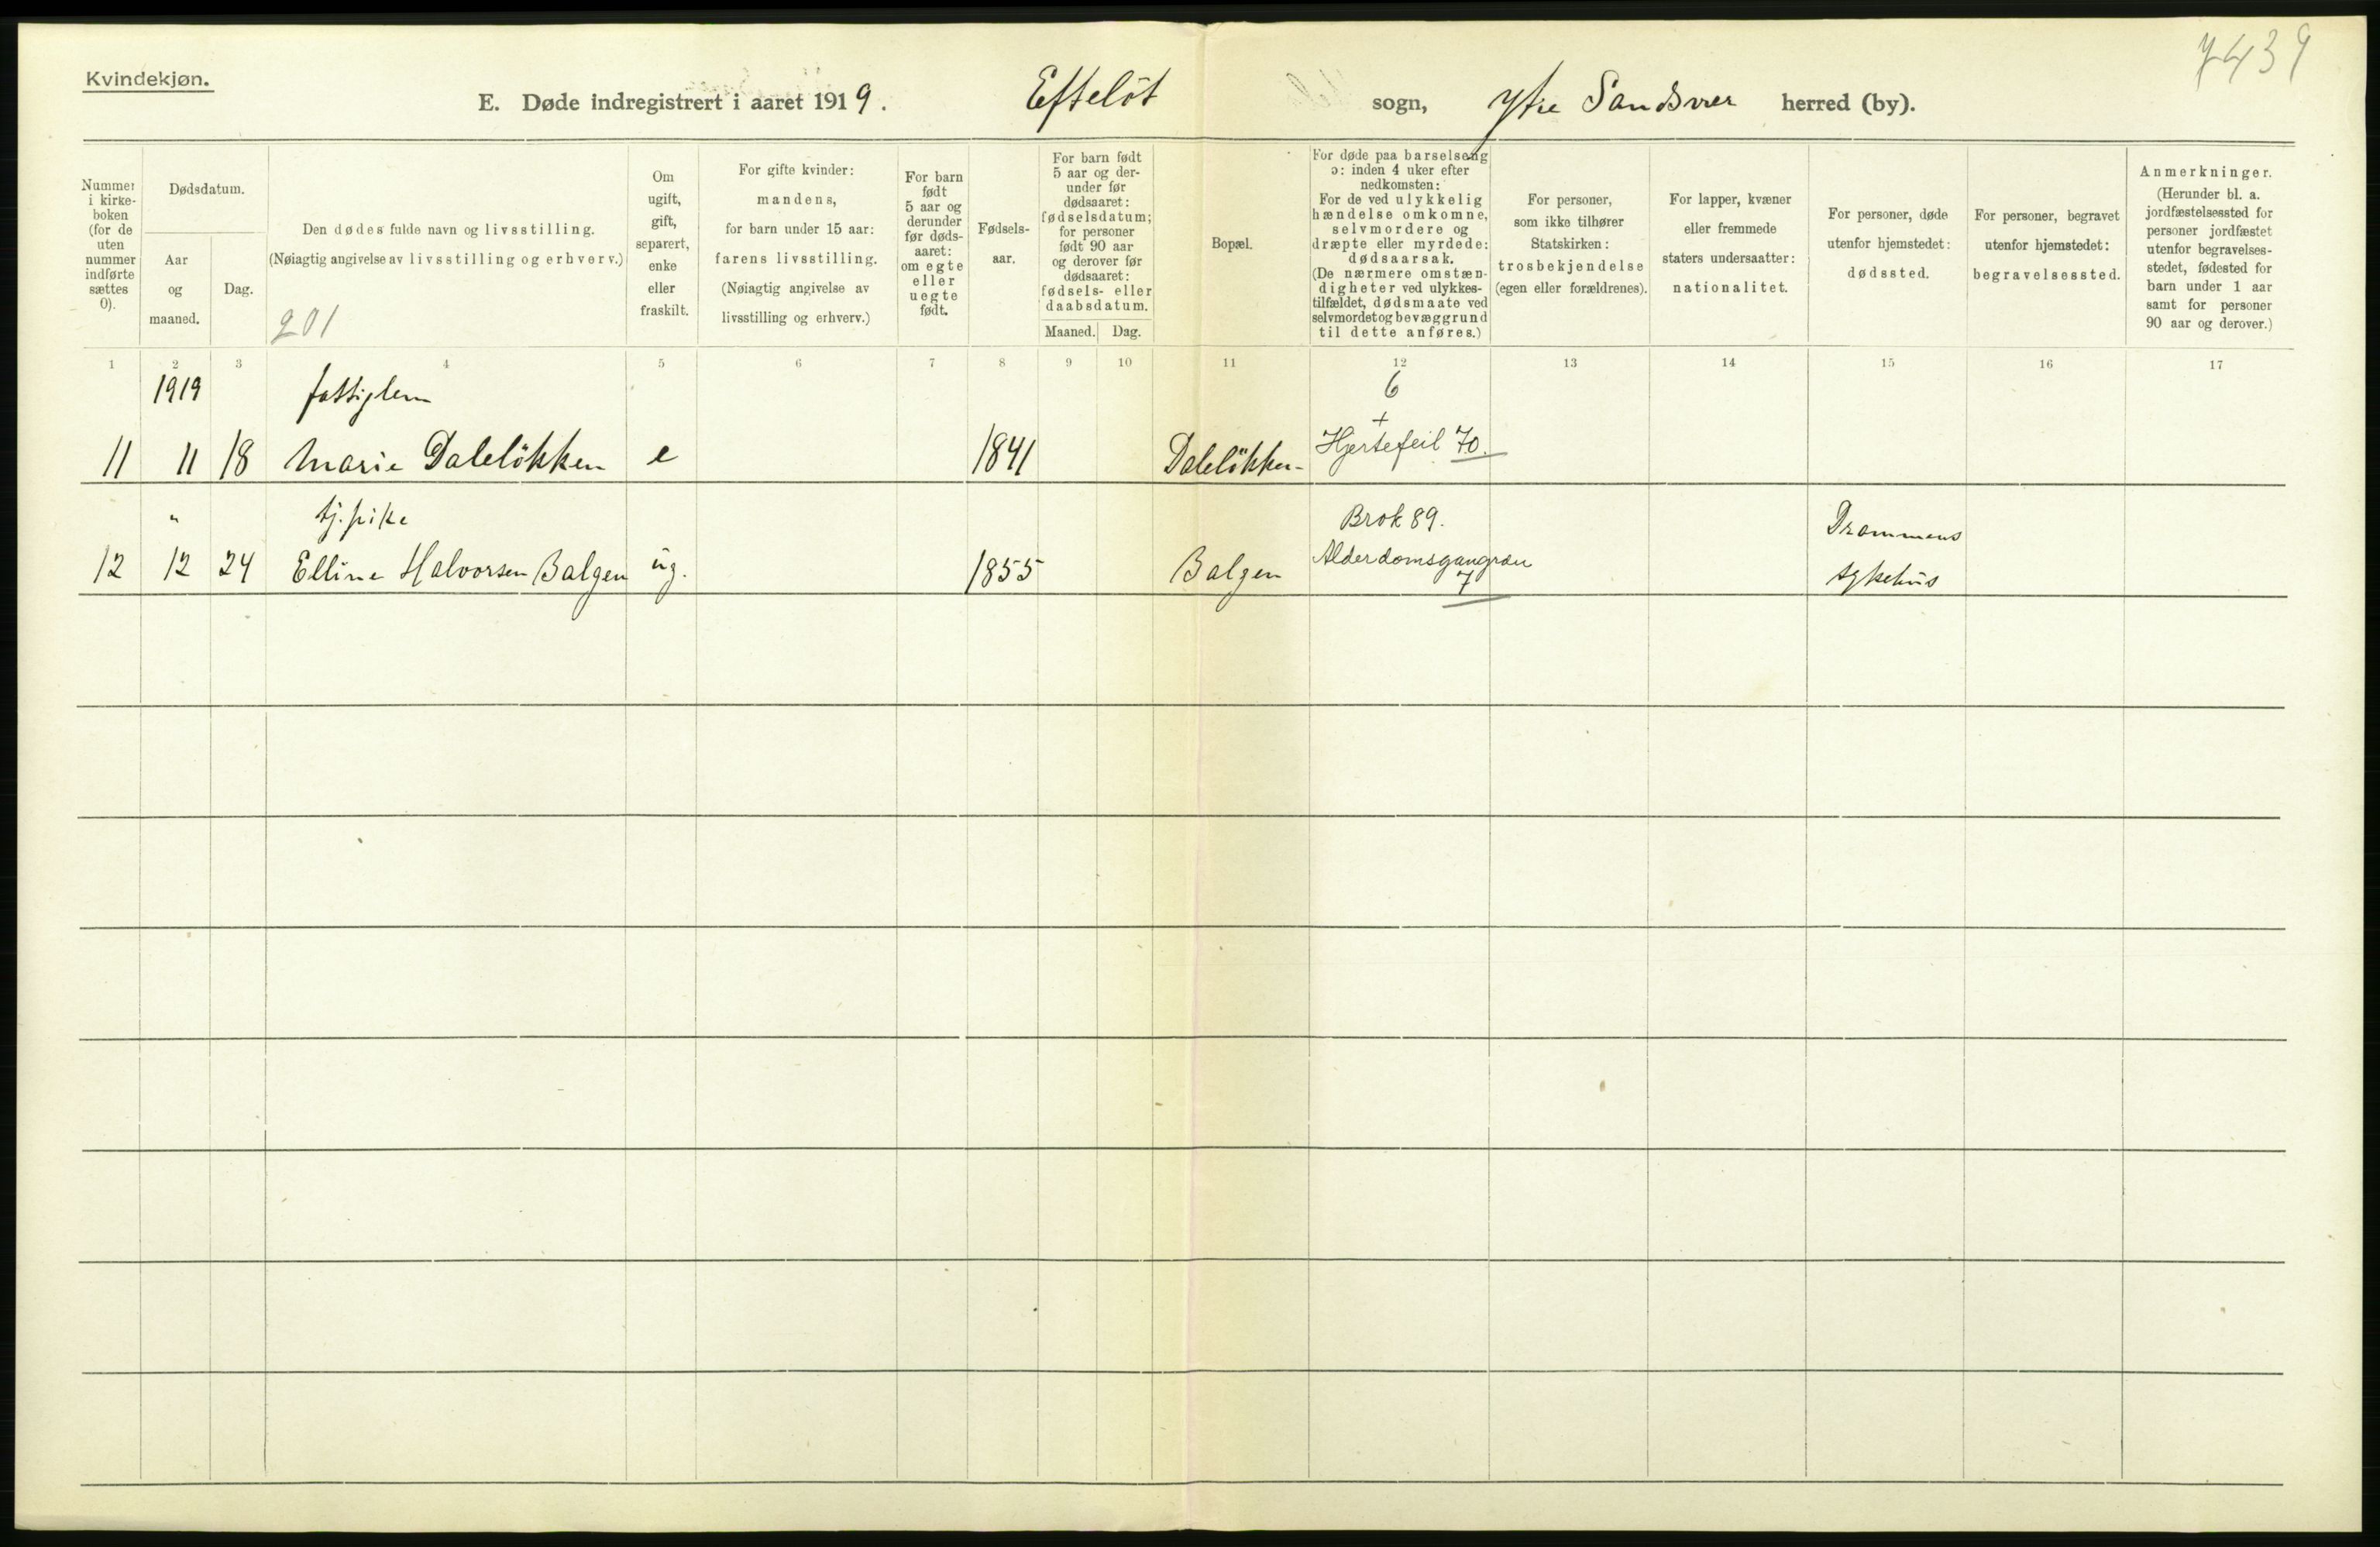 7439
Kvindekjøn.
E. Døde indregistrert i aaret 1919. Efteløt sogn, Ytre Sandsvær herred (by).
Nummer i kirkeboken (for de uten nummer indførte sættes 0).
Dødsdatum.
Aar og maaned.
Dag.
Den dødes fulde navn og livsstilling.
(Nøiagtig angivelse av livsstilling og erhverv.)
201
Om ugift, gift, separert, enke eller fraskilt.
For gifte kvinder:
mandens,
for barn under 15 aar:
farens livsstilling.
(Nøiagtig angivelse av
livsstilling og erhverv.)
For barn født 5 aar og derunder før dødsaaret: om egte eller uegte født.
Fødselsaar.
For barn født
5 aar og derunder før
dødsaaret:
fødselsdatum;
for personer
født 90 aar
og derover før
dødsaaret:
fødsels- eller
daabsdatum.
Maaned. Dag.
Bopæl.
For døde paa barselseng
ɔ: inden 4 uker efter
nedkomsten:
For de ved ulykkelig
hændelse omkomne,
selvmordere og
dræpte eller myrdede:
dødsaarsak.
(De nærmere omstændigheter ved ulykkestilfældet, dødsmaate ved
selvmordet og bevæggrund
til dette anføres.)
For personer,
som ikke tilhører
Statskirken:
trosbekjendelse
(egen eller forældrenes).
For lapper, kvæner
eller fremmede
staters undersaatter:
nationalitet.
For personer, døde
utenfor hjemstedet:
dødssted.
For personer, begravet
utenfor hjemstedet:
begravelsessted.
Anmerkninger.
(Herunder bl. a.
jordfæstelsessted for
personer jordfæstet
utenfor begravelsesstedet, fødested for
barn under 1 aar
samt for personer
90 aar og derover.)
1 2 3 4 5 6 7 8 9 10 11 12 13 14 15 16 17
1919 fattiglem 6
+
11 11 18 Marie Daleløkken e 1841 Daleløkken Hjertefeil 70.
" tj.pike Brok 89. Drammens
12 12 24 Elline Halvorsen Balgen ug. 1855 Balgen Alderdomsgangræn sykehus
7